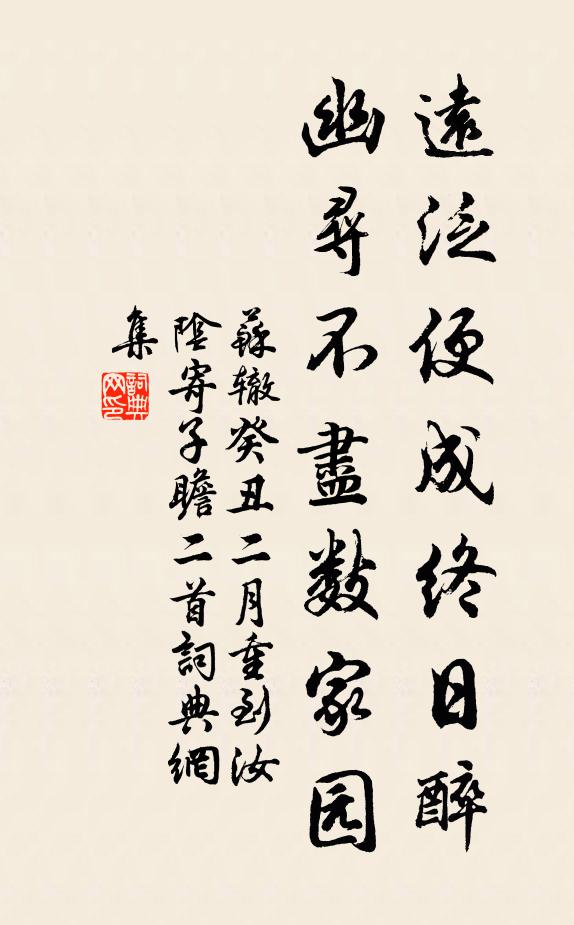 遠泛便成終日醉
幽尋不盡数家园
蘇辙癸丑二月重到汝
陰寄子瞻二首詞典網
集
詞典
网印